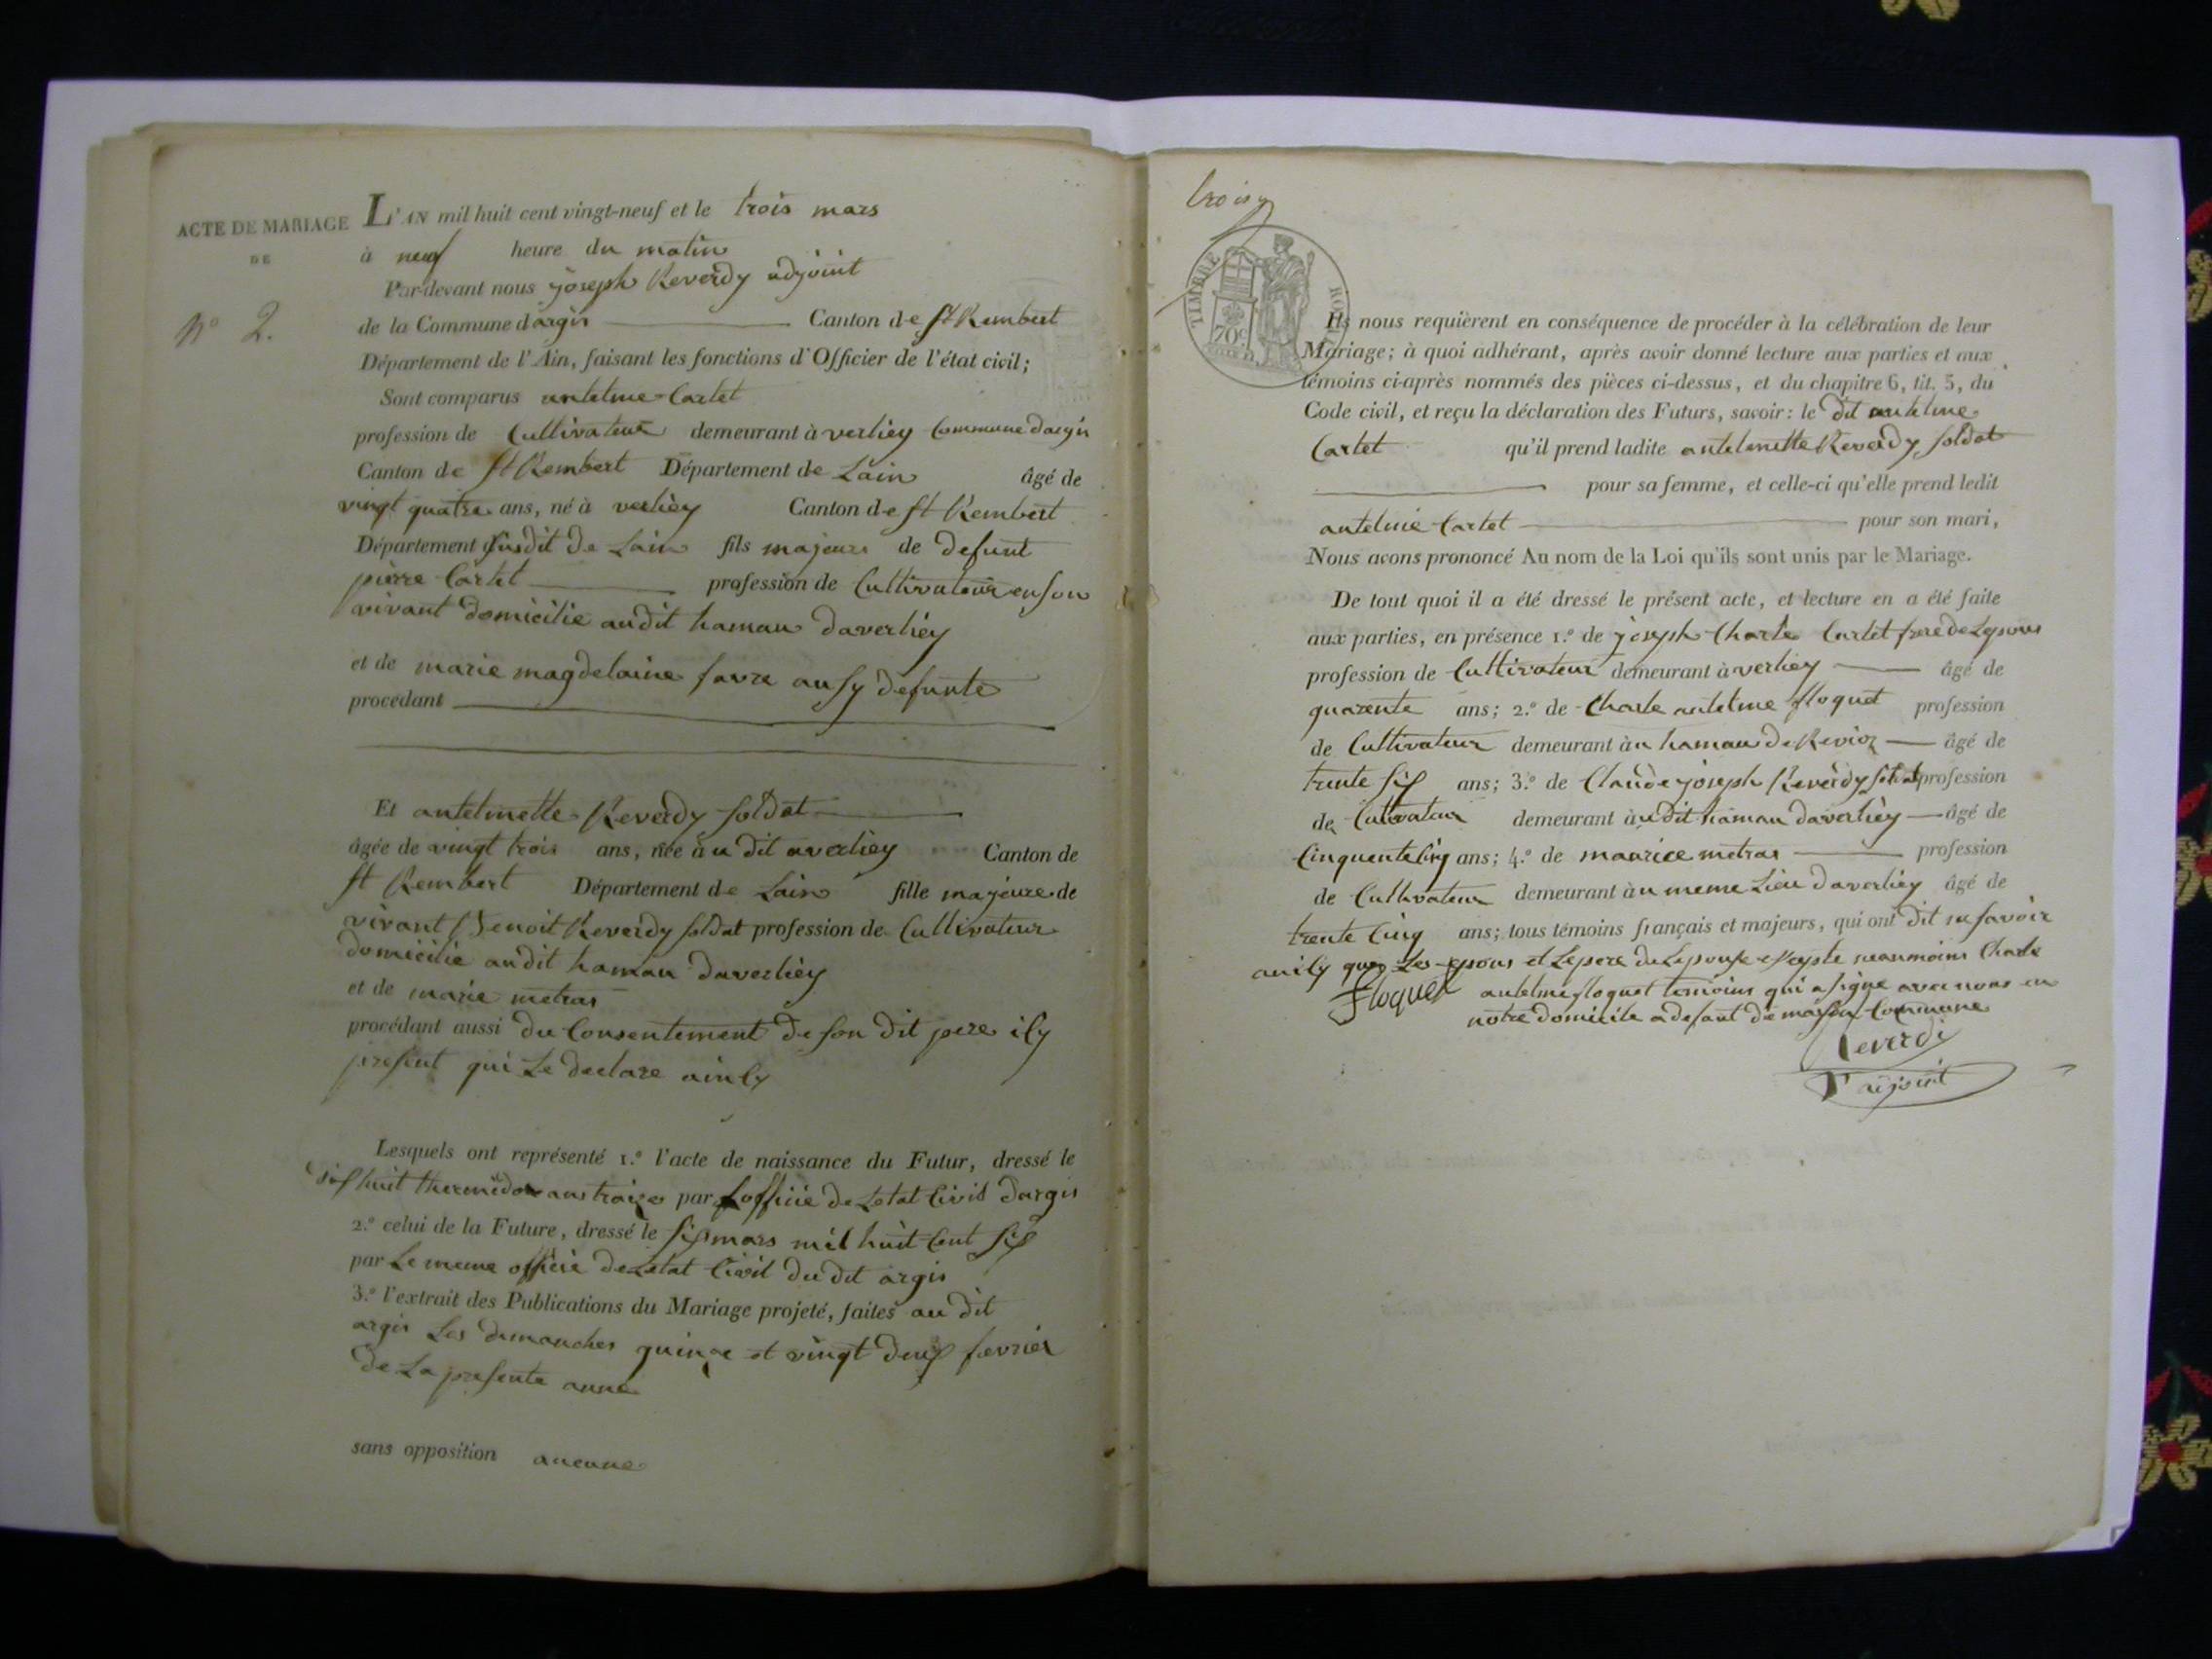 ACTE DE MARIAGE
DE
N° 2.
L'AN mil huit cent vingt-neuf et le trois mars
à neuf heure du matin
Par-devant nous joseph Reverdy adjoint
de la Commune d'argis Canton de St Rembert
Département de l'Ain, faisant les fonctions d'Officier de l'état civil;
Sont comparus antelme Cartet
profession de Cultivateur demeurant à verliey Commune dargis
Canton de St Rembert Département de Lain âgé de
vingt quatre ans, né à verliey Canton de St Rembert
Département susdit de Lain fils majeure de defunt
pierre Cartet profession de Cultivateur en son
vivant domicilie audit hamau daverliey
et de marie magdelaine favre ausy defunte
procédant
Et antelmette Reverdy soldat
âgée de vingt trois ans, née au dit averliey Canton de
St Rembert Département de Lain fille majeure de
vivant Benoit Reverdy soldat profession de Cultivateur
domicilie audit hamau daverliey
et de marie metras
procédant aussi du Consentement de son dit pere isy
present qui Le declare ainsy
Lesquels ont représenté 1.° l'acte de naissance du Futur, dressé le
dix huit thermidor ans traize par Lofficié de Letat Civil dargis
2.° celui de la Future, dressé le six mars mil huit Cent six
par Le meme officié de Letat Civil du dit argis
3.° l'extrait des Publications du Mariage projeté, faites au dit
argis Les dimanches quinze et vingt deux fevrier
de La presente anné
sans opposition aucune
troisy
TIMBRE ROYAL
70c
Ils nous requièrent en conséquence de procéder à la célébration de leur
Mariage; à quoi adhérant, après avoir donné lecture aux parties et aux
témoins ci-après nommés des pièces ci-dessus, et du chapitre 6, tit. 5, du
Code civil, et reçu la déclaration des Futurs, savoir: le dit antelme
Cartet qu'il prend ladite antelmette Reverdy soldat
pour sa femme, et celle-ci qu'elle prend ledit
antelme Cartet pour son mari,
Nous avons prononcé Au nom de la Loi qu'ils sont unis par le Mariage.
De tout quoi il a été dressé le présent acte, et lecture en a été faite
aux parties, en présence 1.° de joseph Charle Cartet frere de Lepoux
profession de Cultivateur demeurant à verliey âgé de
quarente ans; 2.° de Charle antelme floquet profession
de Cultivateur demeurant àu hamau de Revior âgé de
trente six ans; 3.° de Claude joseph Reverdy soldat profession
de Cultivateur demeurant àu dit hamau daverliey âgé de
Cinquente Cinq ans; 4.° de maurice metras profession
de Cultivateur demeurant àu meme Lieu daverliey âgé de
trente Cinq ans; tous témoins français et majeurs, qui ont dit ne savoir
ainsy que Les epoux et Le pere de Lepouse exepte neanmoins Charle
antelme floquet temoins qui a signe avec nous en
Floquet
notre domicile a defaut de maison Commune
Reverdi
adjoint